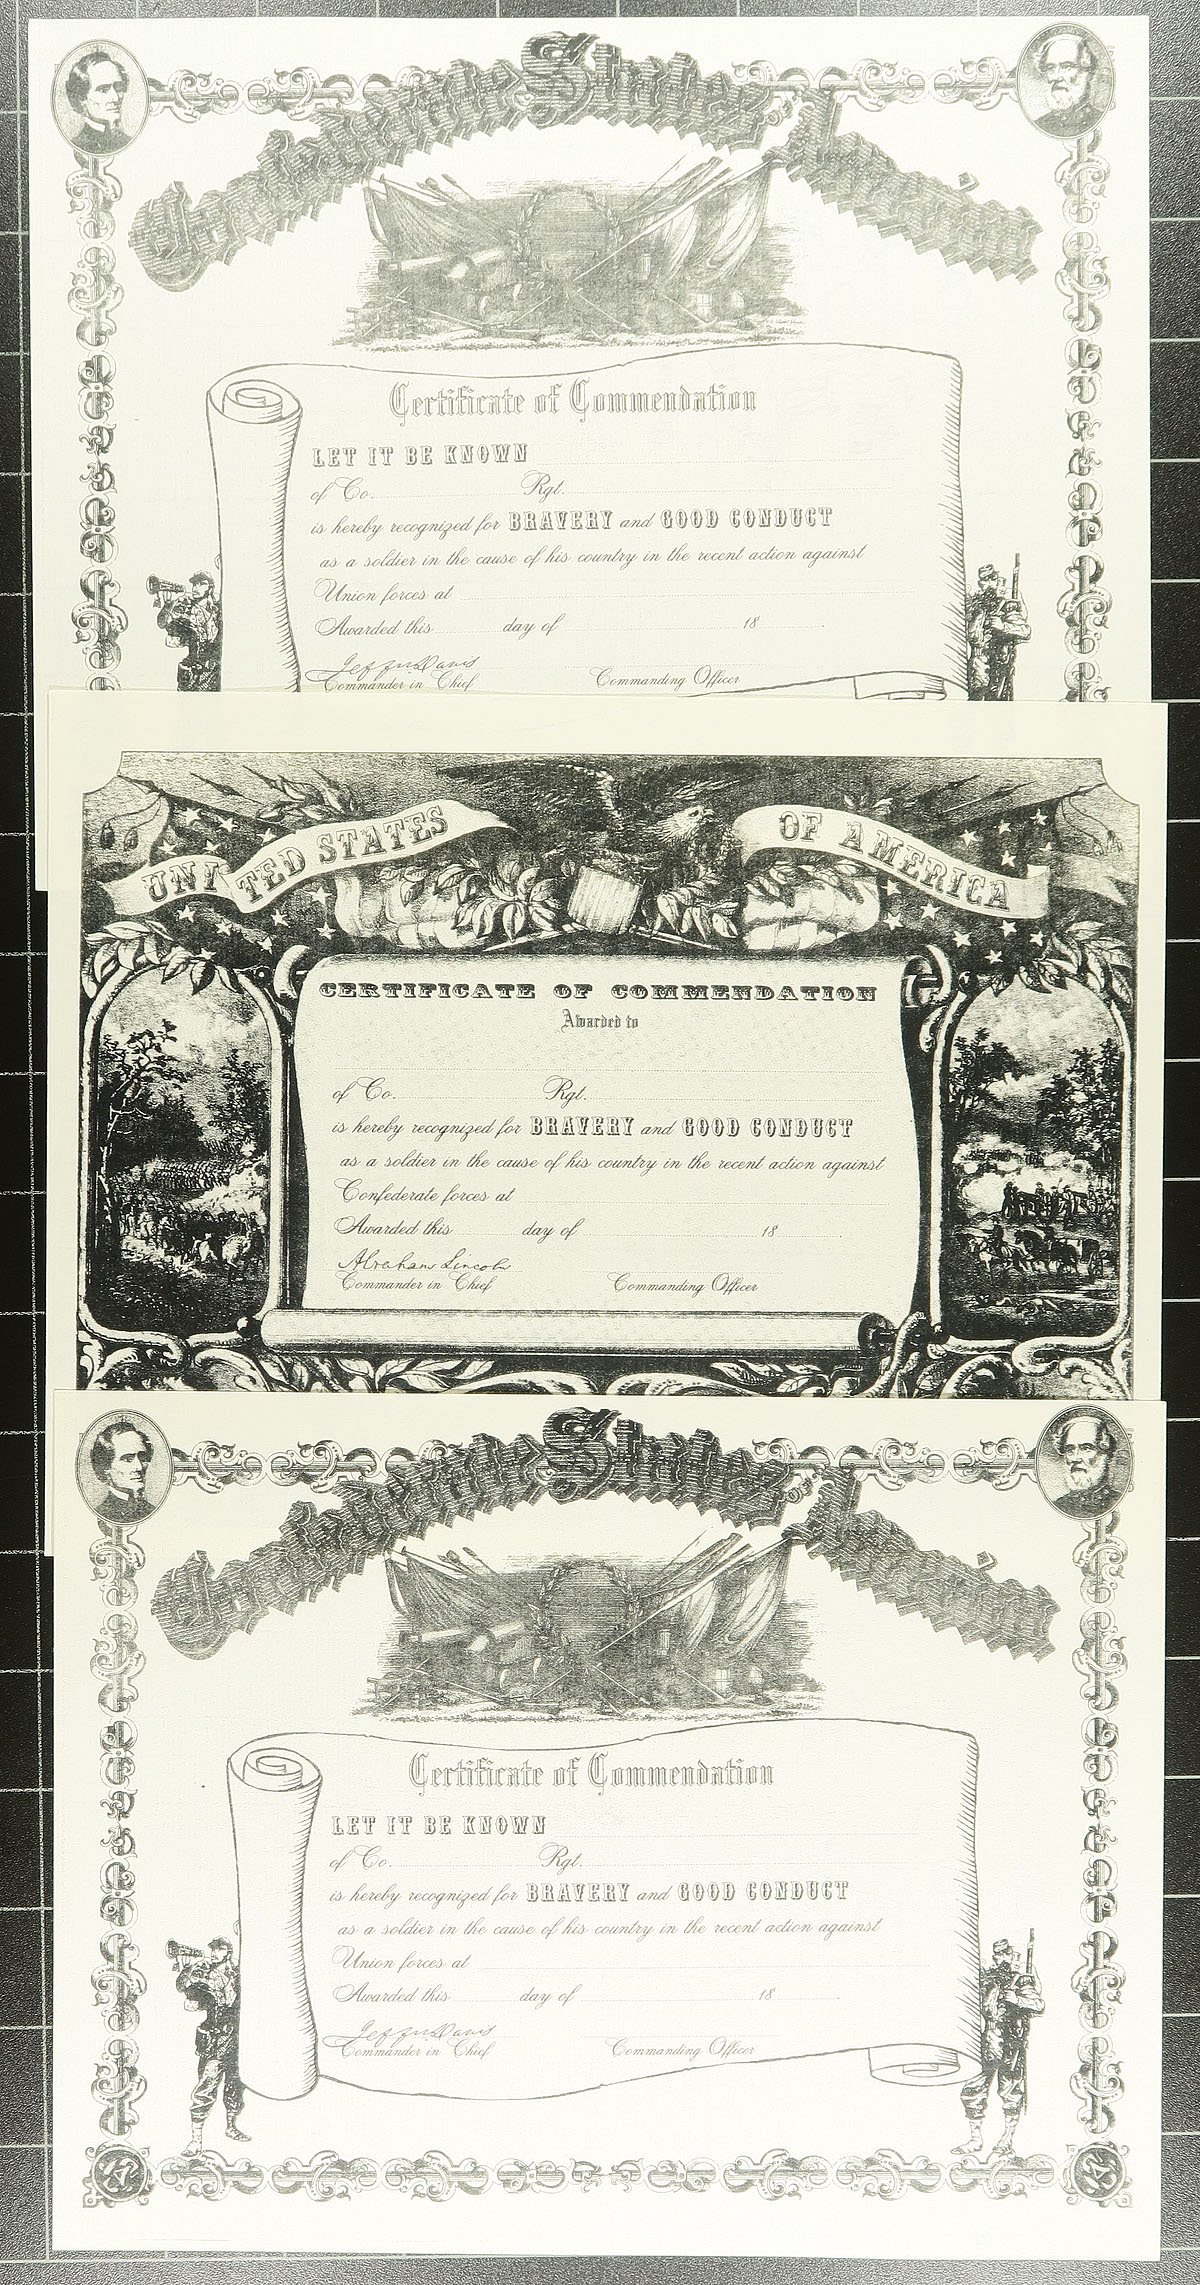 Confederate States of America
Certificate of Commendation
LET IT BE KNOWN
of Co. Rgt.
is hereby recognized for BRAVERY and GOOD CONDUCT
as a soldier in the cause of his country in the recent action against
Union forces at
Awarded this day of 18
Jeff'n Davis
Commander in Chief Commanding Officer
UNITED STATES OF AMERICA
CERTIFICATE OF COMMENDATION
Awarded to
of Co. Rgt.
is hereby recognized for BRAVERY and GOOD CONDUCT
as a soldier in the cause of his country in the recent action against
Confederate forces at
Awarded this day of 18
Abraham Lincoln
Commander in Chief Commanding Officer
Confederate States of America
Certificate of Commendation
LET IT BE KNOWN
of Co. Rgt.
is hereby recognized for BRAVERY and GOOD CONDUCT
as a soldier in the cause of his country in the recent action against
Union forces at
Awarded this day of 18
Jeff'n Davis
Commander in Chief Commanding Officer